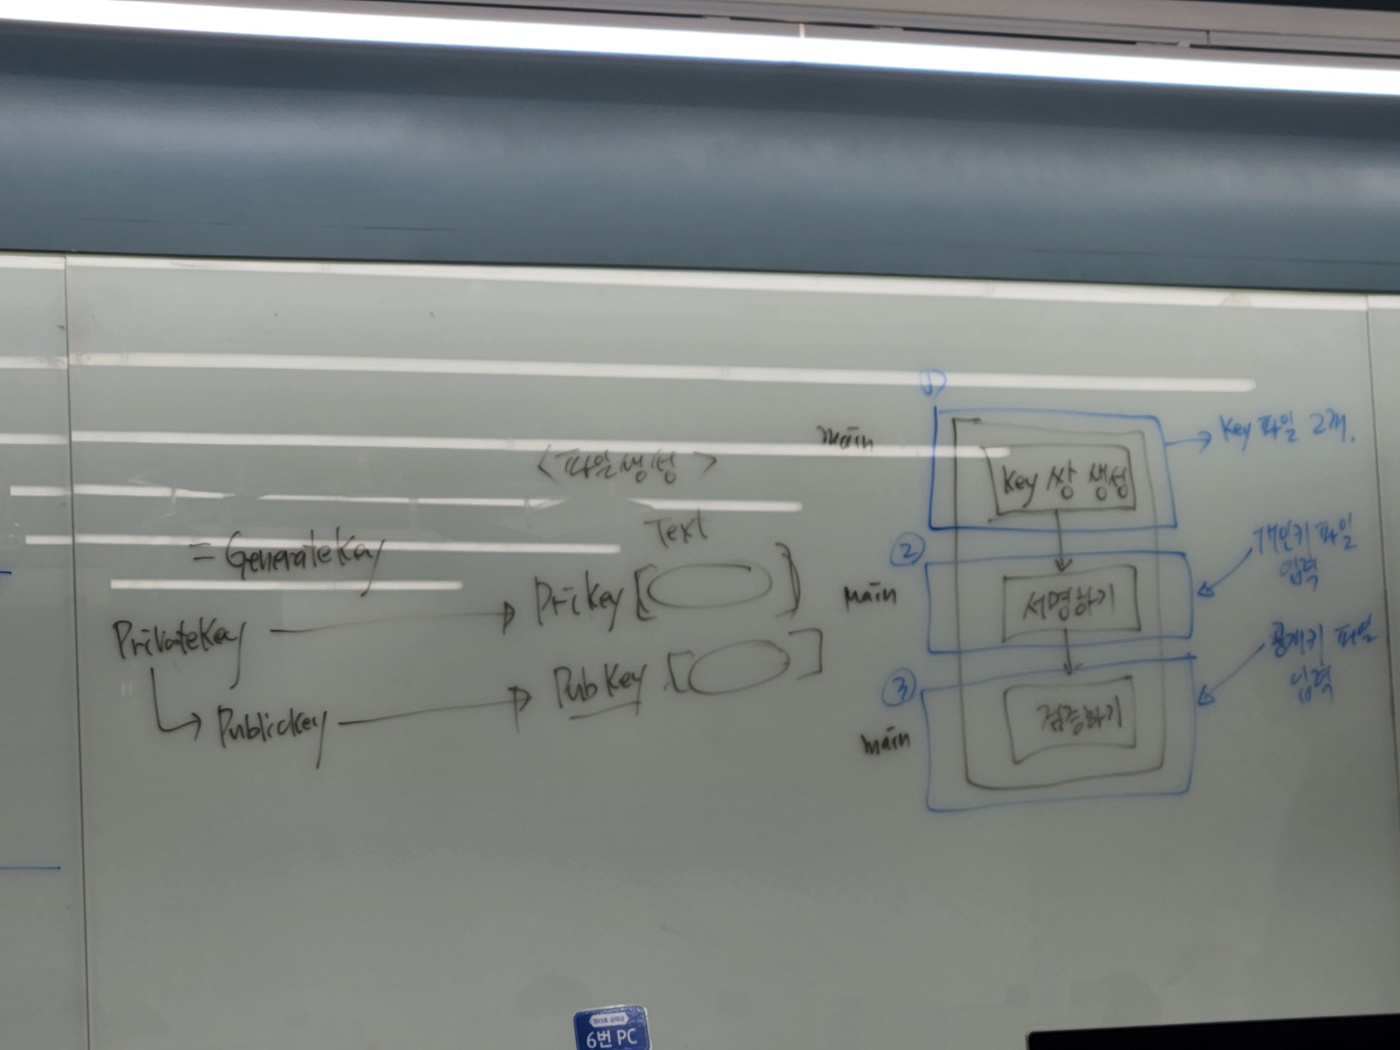 <파일생성>
Text
= GenerateKey
PrivateKey
PriKey [ ]
PublicKey
PubKey [ ]
①
main
Key 쌍 생성
Key 파일 2개.
②
main
서명하기
개인키 파일
입력
③
main
검증하기
공개키 파일
입력
6번 PC